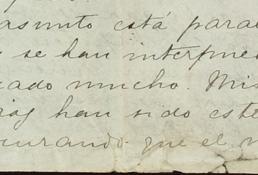 asunto está para
se han interpues
cado mucho. Mis
han sido este
curando que el